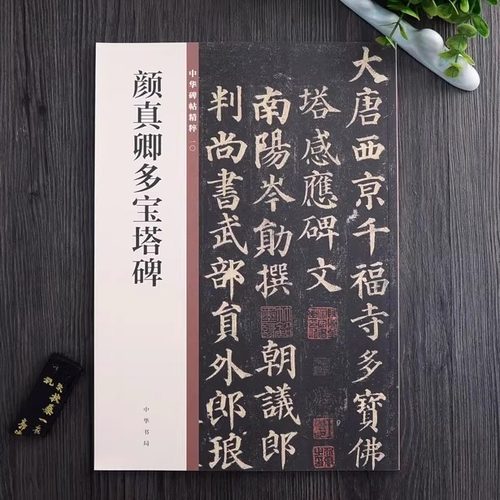 中华碑帖精粹 一〇
颜真卿多宝塔碑
中华书局
大唐西京千福寺多寶佛
塔感應碑文
南陽岑勛撰 朝議郎
判尚書武部員外郎琅